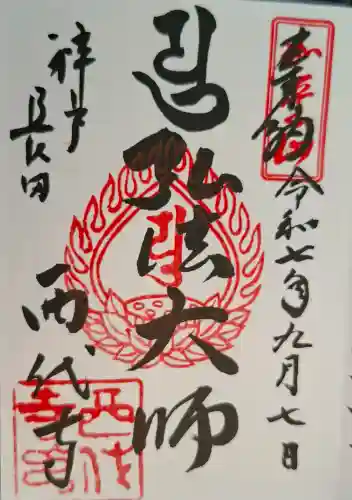 奉納
令和七年九月七日
弘法大師
神戸
長田
西代寺